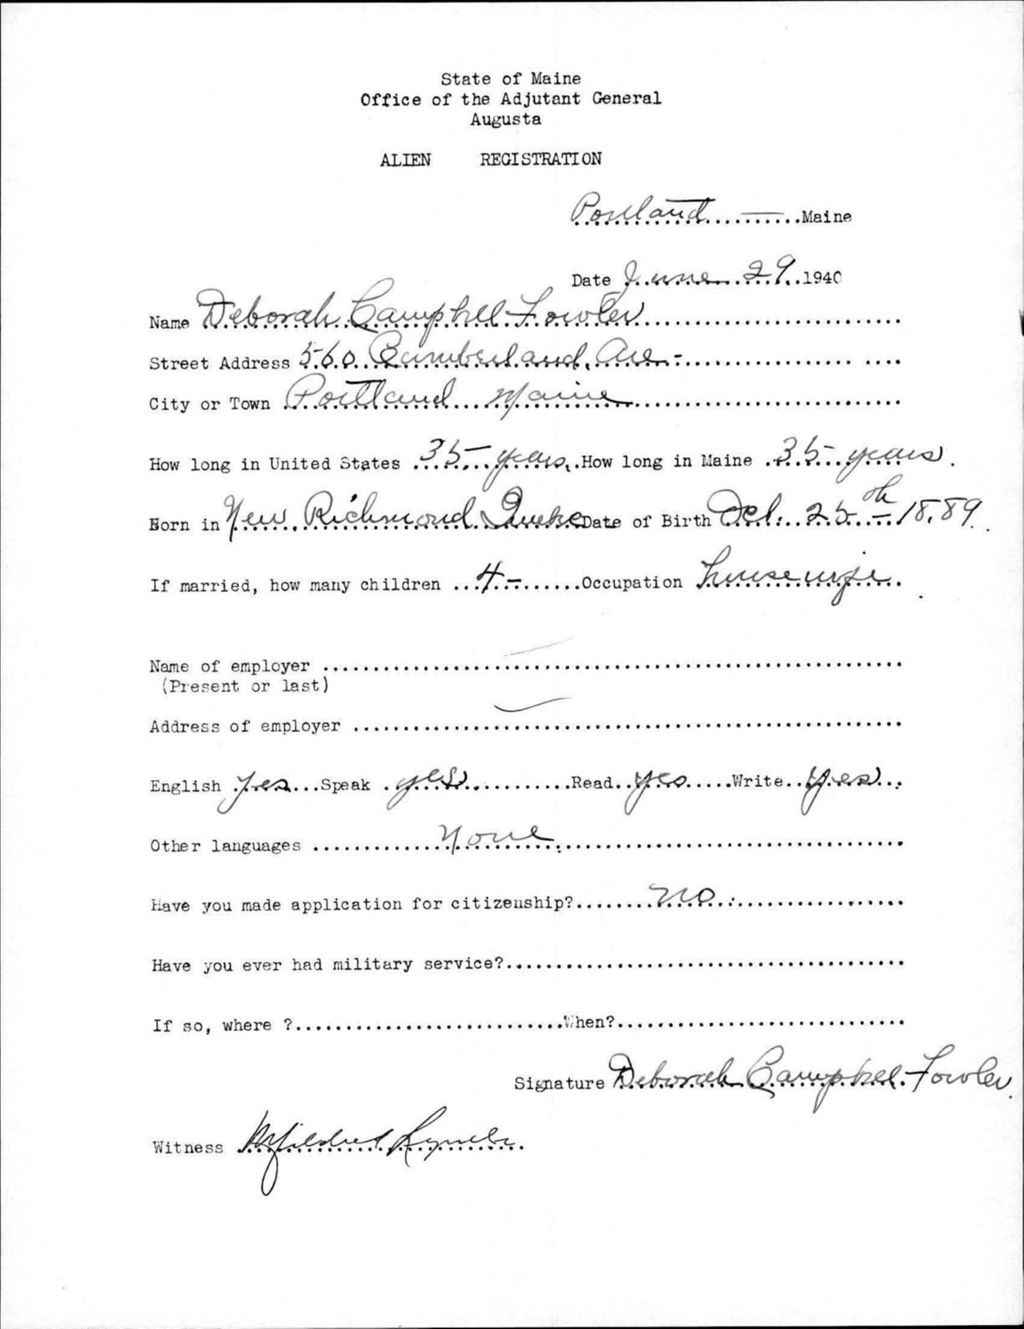 State of Maine
Office of the Adjutant General
Augusta
ALIEN REGISTRATION
Portland — Maine
Date June 29 1940
Name Deborah Campbell Fowler
Street Address 560 Cumberland Ave -
City or Town Portland Maine
How long in United States 35 years How long in Maine 35 years
Born in New Richmond Quebec Date of Birth Oct. 25th - 1889
If married, how many children 4 - Occupation housewife
Name of employer
(Present or last)
Address of employer
English Yes Speak yes Read yes Write yes
Other languages None
Have you made application for citizenship? no
Have you ever had military service?
If so, where ? When?
Signature Deborah Campbell Fowler
Witness Mildred Lynch